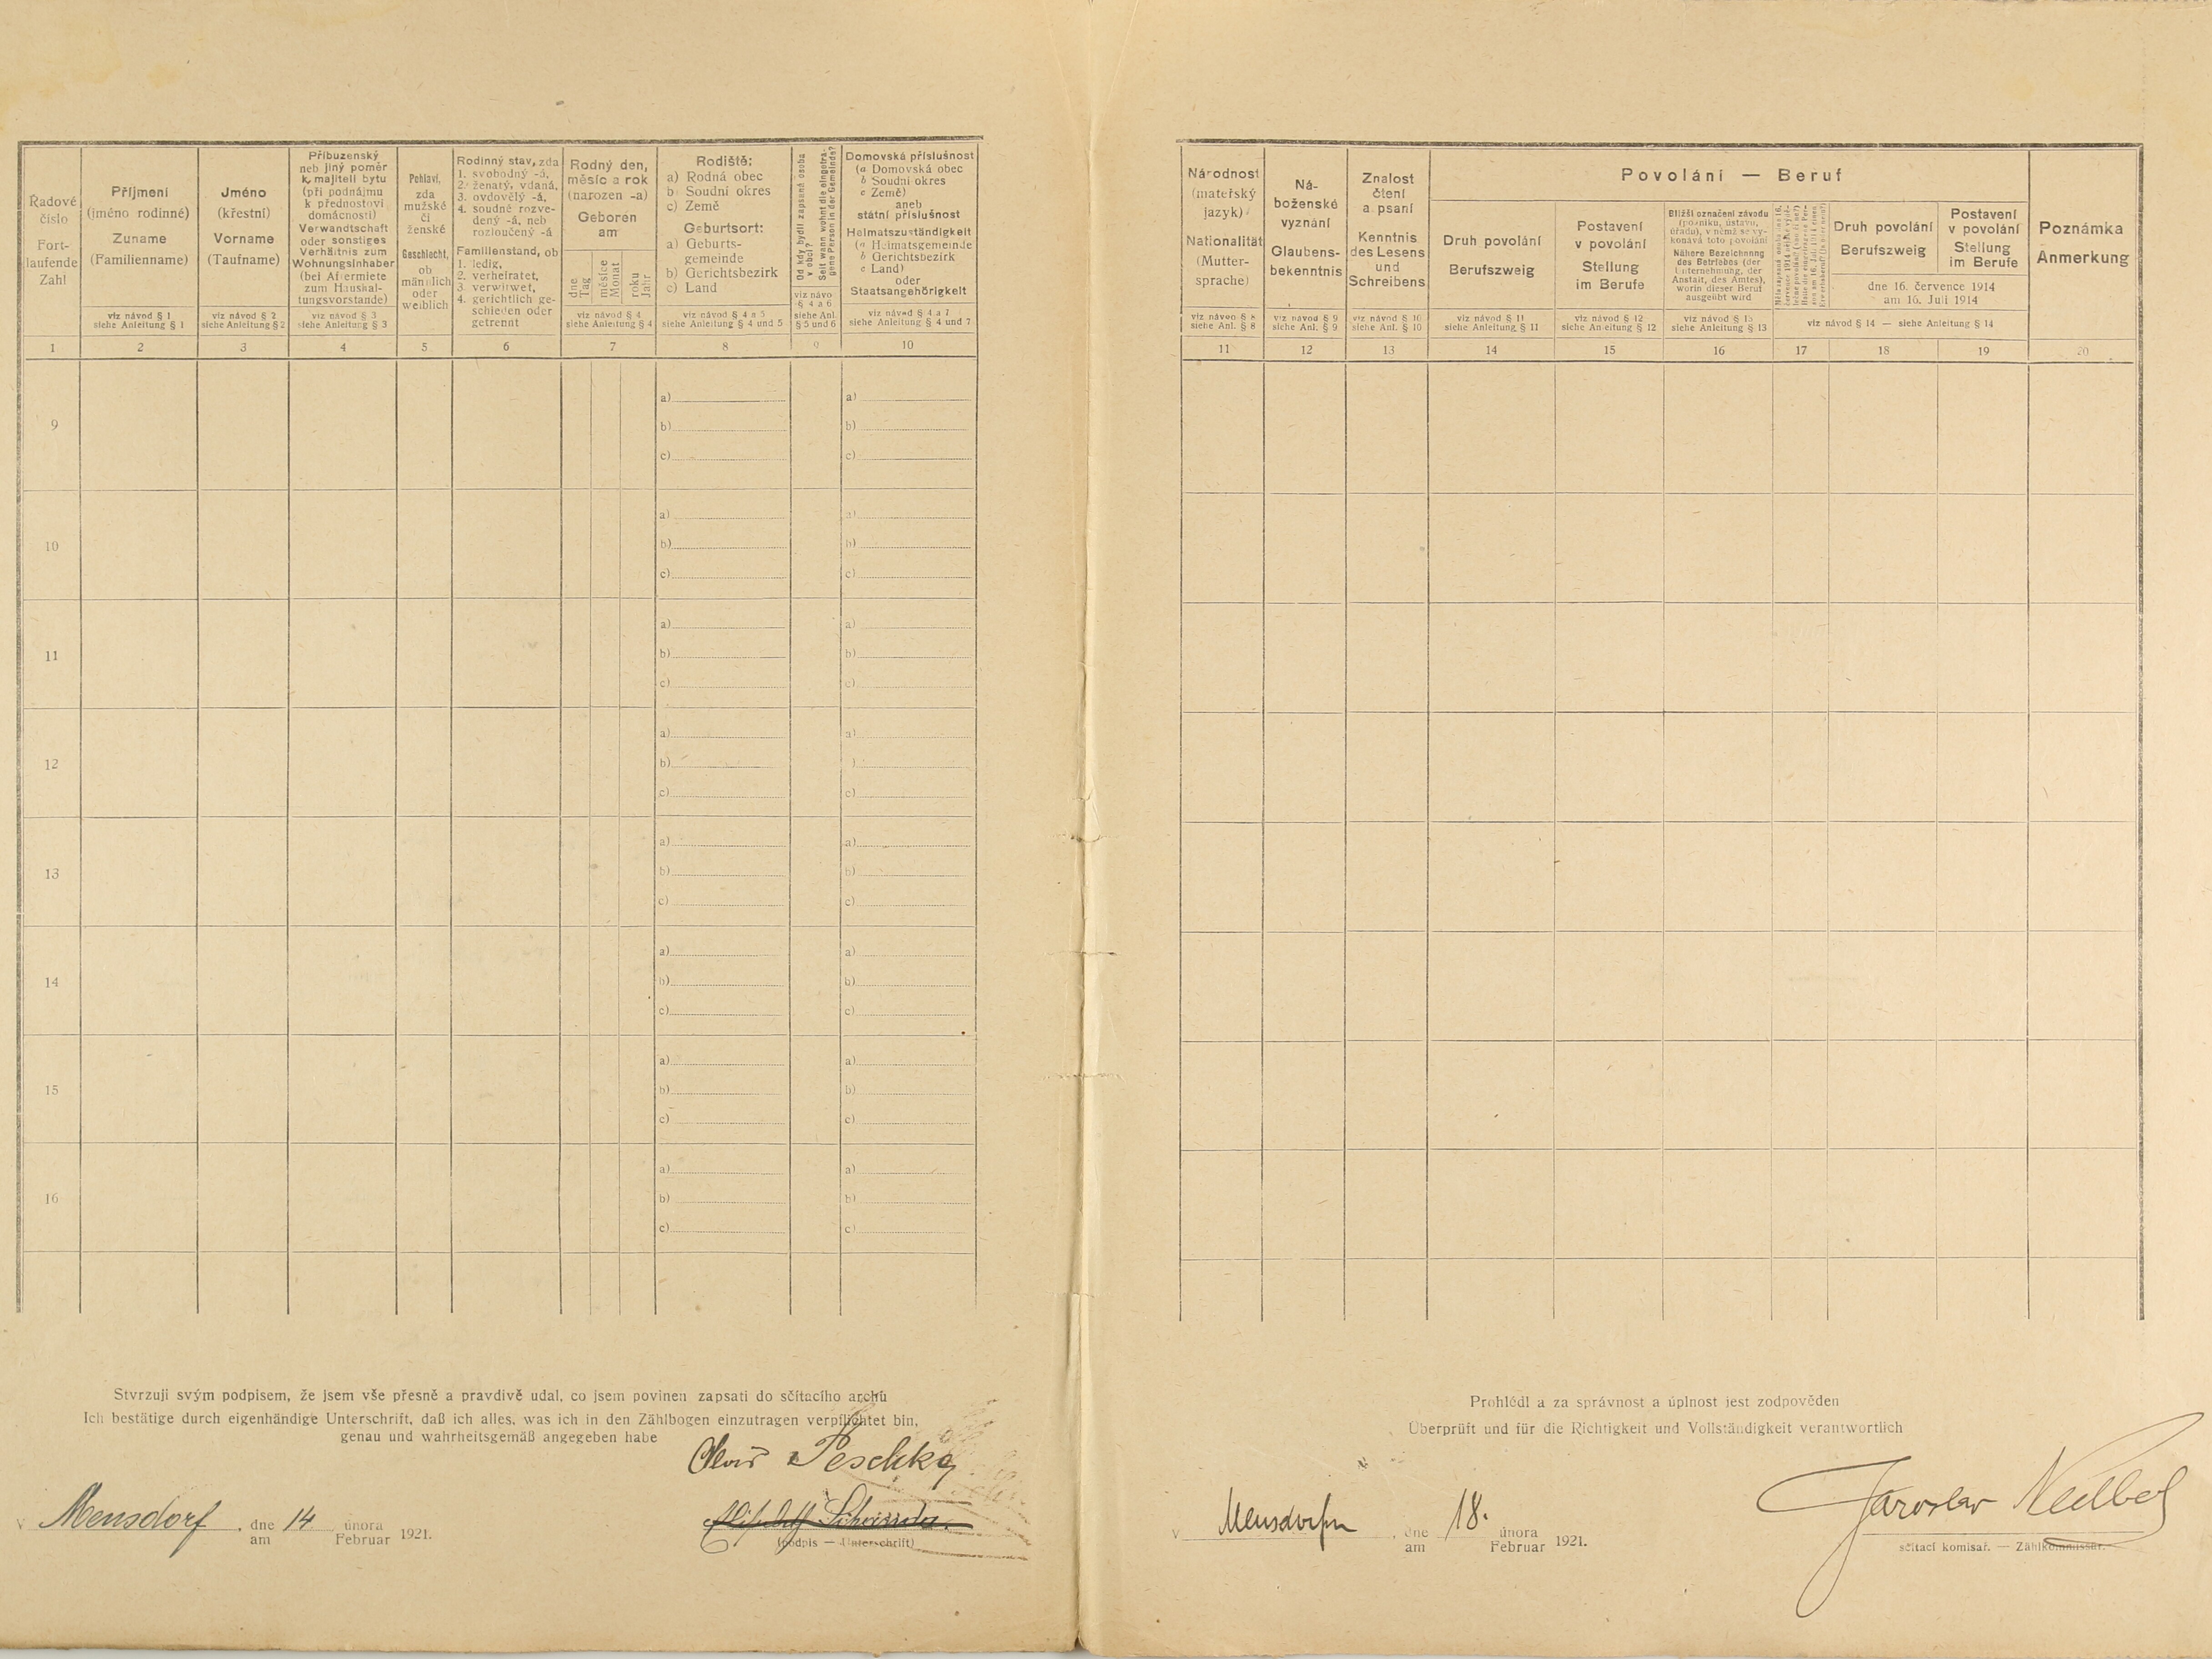 Radové číslo
Fort-
laufende
Zahl
Příjmení
(jméno rodinné)
Zuname
(Familienname)
viz návod § 1
siehe Anleitung § 1
Jméno
(křestní)
Vorname
(Taufname)
viz návod § 2
siehe Anleitung § 2
Příbuzenský
neb jiný poměr
k majiteli bytu
(při podnájmu
k přednostovi
domácnosti)
Verwandtschaft
oder sonstiges
Verhältnis zum
Wohnungsinhaber
(bei Aftermiete
zum Haushal-
tungsvorstande)
viz návod § 3
siehe Anleitung § 3
Pohlaví,
zda
mužské
či
ženské
Geschlecht,
ob
männlich
oder
weiblich
Rodinný stav, zda
1. svobodný -á,
2. ženatý, vdaná,
3. ovdovělý -á,
4. soudně rozve-
dený -á, neb
rozloučený -á
Familienstand, ob
1. ledig,
2. verheiratet,
3. verwitwet,
4. gerichtlich ge-
schieden oder
getrennt
Rodný den,
měsíc a rok
(narozen -a)
Geboren
am
dne
Tag
měsíce
Monat
roku
Jahr
viz návod § 4
siehe Anleitung § 4
Rodiště:
a) Rodná obec
b) Soudní okres
c) Země
Geburtsort:
a) Geburts-
gemeinde
b) Gerichtsbezirk
c) Land
viz návod § 4 a 5
siehe Anleitung § 4 und 5
Od kdy bydlí zapsaná osoba
v obci?
Seit wann wohnt die eingetra-
gene Person in der Gemeinde?
viz návo
§ 4 a 6
siehe Anl.
§ 5 und 6
Domovská příslušnost
(a Domovská obec
b Soudní okres
c Země)
aneb
státní příslušnost
Heimatszuständigkeit
(a Heimatsgemeinde
b Gerichtsbezirk
c Land)
oder
Staatsangehörigkeit
viz návod § 4 a 7
siehe Anleitung § 4 und 7
1 2 3 4 5 6 7 8 9 10
Národnost
(mateřský
jazyk)
Nationalität
(Mutter-
sprache)
viz návod § 8
siehe Anl. § 8
Ná-
boženské
vyznání
Glaubens-
bekenntnis
viz návod § 9
siehe Anl. § 9
Znalost
čtení
a psaní
Kenntnis
des Lesens
und
Schreibens
viz návod § 10
siehe Anl. § 10
Povolání — Beruf
Druh povolání
Berufszweig
viz návod § 11
siehe Anleitung § 11
Postavení
v povolání
Stellung
im Berufe
viz návod § 12
siehe Anleitung § 12
Bližší označení závodu
(podniku, ústavu,
úřadu), v němž se vy-
konává toto povolání
Nähere Bezeichnung
des Betriebes (der
Unternehmung, der
Anstalt, des Amtes),
worin dieser Beruf
ausgeübt wird
viz návod § 13
siehe Anleitung § 13
Druh povolání
Berufszweig
Postavení
v povolání
Stellung
im Berufe
dne 16. července 1914
am 16. Juli 1914
viz návod § 14 — siehe Anleitung § 14
Poznámka
Anmerkung
11 12 13 14 15 16 17 18 19 20
9
a) a)
b) b)
c) c)
10
a) a)
b) b)
c) c)
11
a) a)
b) b)
c) c)
12
a) a)
b) )
c) c)
13
a) a)
b) b)
c) c)
14
a) a)
b) b)
c) c)
15
a) a)
b) b)
c) c)
16
a) a)
b) b)
c) c)
Stvrzuji svým podpisem, že jsem vše přesně a pravdivě udal, co jsem povinen zapsati do sčítacího archu
Ich bestätige durch eigenhändige Unterschrift, daß ich alles, was ich in den Zählbogen einzutragen verpflichtet bin,
genau und wahrheitsgemäß angegeben habe
Alois Peschke
v Mensdorf, dne 14 února 1921.
am Februar
(podpis — Unterschrift)
Prohlédl a za správnost a úplnost jest zodpověden
Überprüft und für die Richtigkeit und Vollständigkeit verantwortlich
v Mensdorfu, dne 18. února 1921.
am Februar
Jaroslav
sčítací komisař. — Zählkommissär.